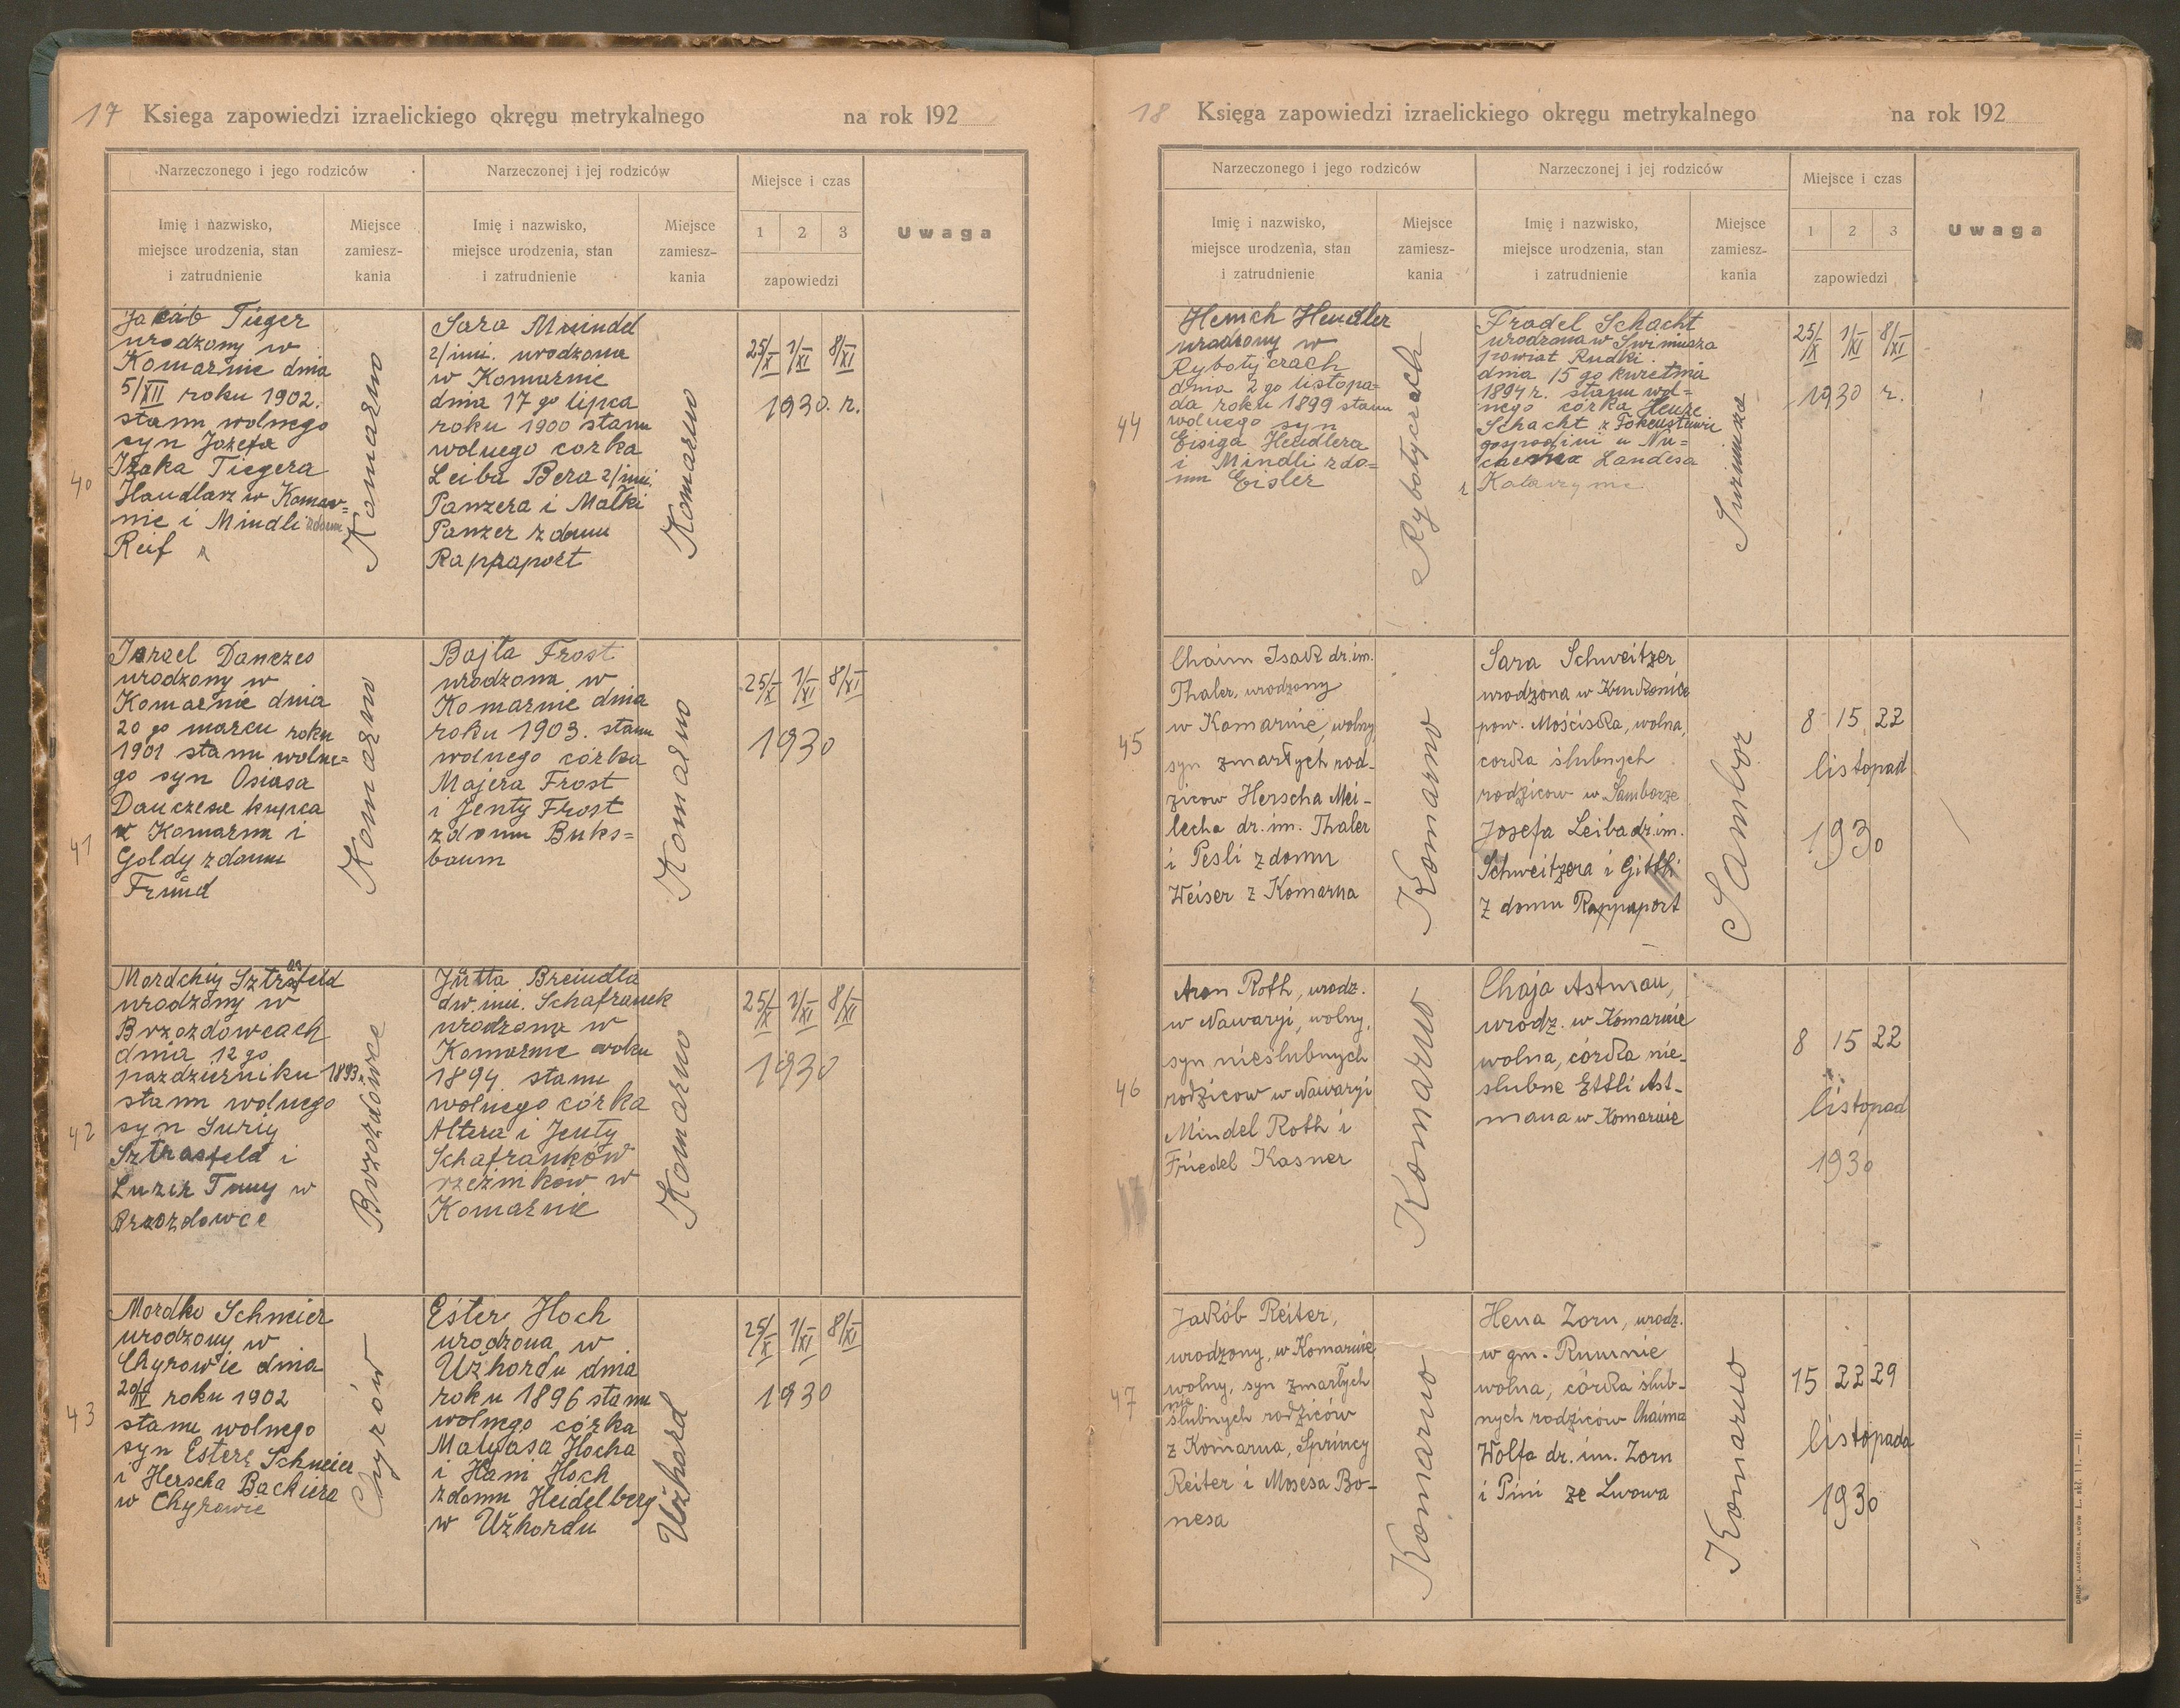 17 Ksiega zapowiedzi izraelickiego okręgu metrykalnego na rok 192
Narzeczonego i jego rodziców
Narzeczonej i jej rodziców
Miejsce i czas
Uwaga
Imię i nazwisko,
miejsce urodzenia, stan
i zatrudnienie
Miejsce
zamiesz-
kania
Imię i nazwisko,
miejsce urodzenia, stan
i zatrudnienie
Miejsce
zamiesz-
kania
1 2 3
zapowiedzi
40
Jakób Tieger
urodzony w
Komarnie dnia
5/XII roku 1902.
stanu wolnego
syn Józefa
Izaka Tiegera
Handlarz w Komar=
nie i Mindli z domu
Reif
Komarno
Sara Mindel
2/imi. urodzona
w Komarnie
dnia 17 go lipca
roku 1900 stanu
wolnego corka
Leiba Bera 2/imi.
Panzera i Małki
Panzer z domu
Rappaport
Komarno
25/X 1/XI 8/XI
1930. r.
41
Israel Danczes
urodzony w
Komarnie dnia
20 go marcu roku
1901 stanu wolne=
go syn Osiasa
Danczesa kupca
z Komarna i
Goldy z domu
Fründ
Komarno
Bajla Frost
urodzona w
Komarnie dnia
roku 1903. stanu
wolnego córka
Majera Frost
i Jenty Frost
z domu Buks=
baum
Komarno
25/X 1/XI 8/XI
1930
42
Mordchij Sztrasfeld
urodzony w
Brzozdowcach
dnia 12 go
pazdzierniku 1893r.
stanu wolnego
syn Suriy
Sztrasfeld i
w
Brzozdowce
Brzozdowce
Jütta Breindla
dw. imi. Schafranek
urodzona w
Komarnie roku
1894. stanu
wolnego córka
Altera i Jenty
Schafranków
rzeżników w
Komarnie
Komarno
25/X 1/XI 8/XI
1930
43
Mordko Schmeier
urodzony w
Chyrowie dnia
20/IV roku 1902
stanu wolnego
syn Esterę Schmeier
i Herscha Bachiera
w Chyrowie
Chyrów
Ester Hoch
urodzona w
Użhordu dnia
roku 1896 stanu
wolnego córka
Matyasa Hocha
i Hani Hoch
z domu Heidelberg
w Użhordu
Użhord
25/X 1/XI 8/XI
1930
18 Księga zapowiedzi izraelickiego okręgu metrykalnego na rok 192
Narzeczonego i jego rodziców
Narzeczonej i jej rodziców
Miejsce i czas
Uwaga
Imię i nazwisko,
miejsce urodzenia, stan
i zatrudnienie
Miejsce
zamiesz-
kania
Imię i nazwisko,
miejsce urodzenia, stan
i zatrudnienie
Miejsce
zamiesz-
kania
1 2 3
zapowiedzi
44
Henich Hendler
urodzony w
Rybotyczach
dnia 2 go listopa=
da roku 1899 stanu
wolnego syn
Eisiga Hendlera
i Mindli z do=
mu Eisler
Rybotyczach
Fradel Schacht
urodzona w Swiniusza
powiat Rudki.
dnia 15 go kwietnia
1894 r. stanu wol=
nego córka
Schacht z
gospodini u
Landesa
25/IX 1/XI 8/XI
1930 r.
45
Chaim Isak dr. im.
Thaler, urodzony
w Komarnie, wolny
syn zmarłych rod-
ziców Herscha Mei-
lecha dr. im. Thaler
i Pesli z domu
Weiser z Komarna
Komarno
Sara Schweitzer
urodzona w Krukenice
pow. Mościska, wolna,
corka ślubnych
rodziców w Samborze
Josefa Leiba dr. im.
Schweitzera i Gittli
z domu Rappaport
Sambor
8 15 22
listopad
1930
46
Aron Roth, urodz.
w Nawaryi, wolny,
syn nieślubnych
rodziców w Nawaryi
Mindel Roth i
Friedel Kasner
Komarno
Chaja Astman,
urodz. w Komarnie
wolna, córka nie-
slubne Ettli Ast-
mana w Komarnie
8 15 22
listopad
1930
47
Jakób Reiter,
urodzony, w Komarnie,
wolny, syn zmarłych
nie
ślubnych rodziców
z Komarna, Sprincy
Reiter i Mosesa Bo-
nesa
Komarno
Hena Zorn, urodz.
w gm. Rumnie
wolna, córka ślub-
nych rodziców Chaima
Wolfa dr. im. Zorn
i Pini ze Lwowa
Komarno
15 22 29
listopada
1930
DRUK I. JAEGERA, LWÓW